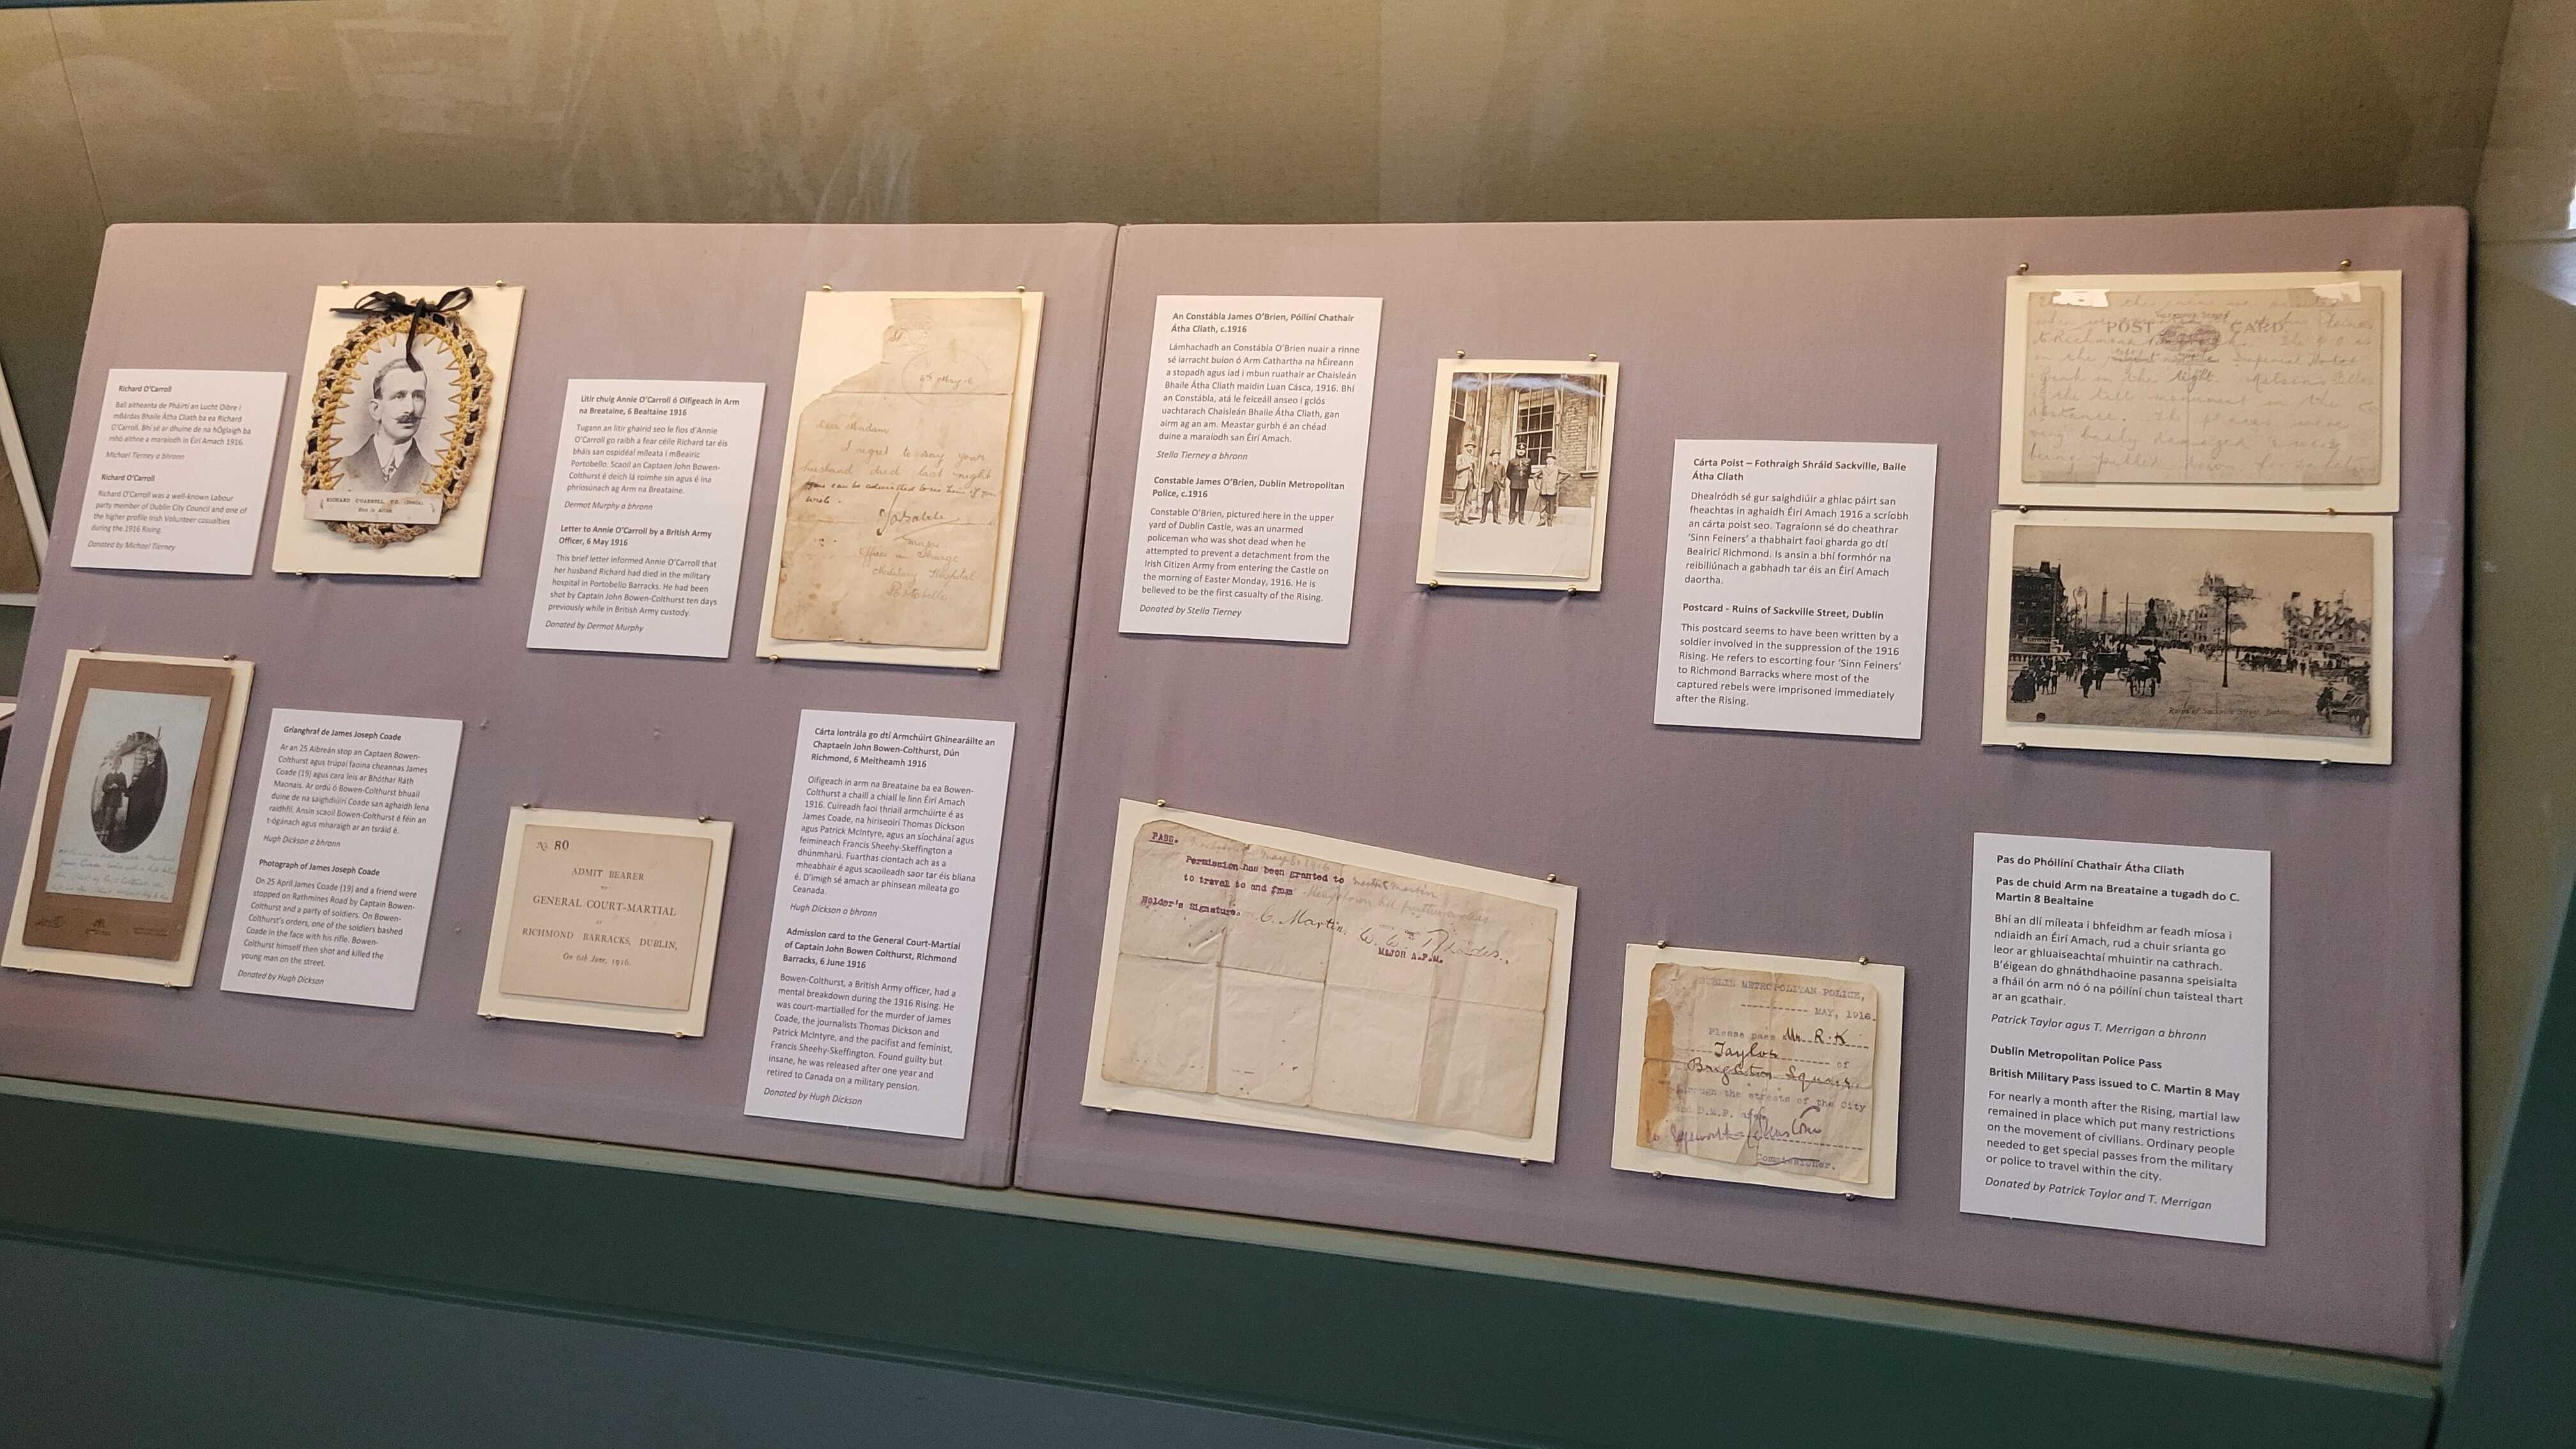 Richard O'Carroll
Ball aitheanta de Pháirtí an Lucht Oibre i
mBárdas Bhaile Átha Cliath ba ea Richard
O'Carroll. Bhí sé ar dhuine de na hÓglaigh ba
mhó aithne a maraíodh in Éirí Amach 1916.
Michael Tierney a bhronn
Richard O'Carroll
Richard O'Carroll was a well-known Labour
party member of Dublin City Council and one of
the higher profile Irish Volunteer casualties
during the 1916 Rising.
Donated by Michael Tierney
RICHARD O'CARROLL, T.C.
Litir chuig Annie O'Carroll ó Oifigeach in Arm
na Breataine, 6 Bealtaine 1916
Tugann an litir ghairid seo le fios d'Annie
O'Carroll go raibh a fear céile Richard tar éis
bháis san ospidéal míleata i mBeairic
Portobello. Scaoil an Captaen John Bowen-
Colthurst é deich lá roimhe sin agus é ina
phríosúnach ag Arm na Breataine.
Dermot Murphy a bhronn
Letter to Annie O'Carroll by a British Army
Officer, 6 May 1916
This brief letter informed Annie O'Carroll that
her husband Richard had died in the military
hospital in Portobello Barracks. He had been
shot by Captain John Bowen-Colthurst ten days
previously while in British Army custody.
Donated by Dermot Murphy
Dear Madam
I regret to say your
husband died last night
You can be admitted to see him if you
Major
Officer in Charge
Military Hospital
Portobello
Grianghraf de James Joseph Coade
Ar an 25 Aibreán stop an Captaen Bowen-
Colthurst agus trúpaí faoina cheannas James
Coade (19) agus cara leis ar Bhóthar Ráth
Maonais. Ar ordú ó Bowen-Colthurst bhuail
duine de na saighdiúirí Coade san aghaidh lena
raidhfil. Ansin scaoil Bowen-Colthurst é féin an
t-ógánach agus mharaigh ar an tsráid é.
Hugh Dickson a bhronn
Photograph of James Joseph Coade
On 25 April James Coade (19) and a friend were
stopped on Rathmines Road by Captain Bowen-
Colthurst and a party of soldiers. On Bowen-
Colthurst's orders, one of the soldiers bashed
Coade in the face with his rifle. Bowen-
Colthurst himself then shot and killed the
young man on the street.
Donated by Hugh Dickson
No. 80
ADMIT BEARER
TO
GENERAL COURT-MARTIAL
AT
RICHMOND BARRACKS, DUBLIN,
On 6th June, 1916.
Cárta Iontrála go dtí Armchúirt Ghinearáilte an
Chaptaein John Bowen-Colthurst, Dún
Richmond, 6 Meitheamh 1916
Oifigeach in arm na Breataine ba ea Bowen-
Colthurst a chaill a chiall le linn Éirí Amach
1916. Cuireadh faoi thriail armchúirte é as
James Coade, na hiriseoirí Thomas Dickson
agus Patrick McIntyre, agus an síochánaí agus
feimineach Francis Sheehy-Skeffington a
dhúnmharú. Fuarthas ciontach ach as a
mheabhair é agus scaoileadh saor tar éis bliana
é. D'imigh sé amach ar phinsean míleata go
Ceanada.
Hugh Dickson a bhronn
Admission card to the General Court-Martial
of Captain John Bowen Colthurst, Richmond
Barracks, 6 June 1916
Bowen-Colthurst, a British Army officer, had a
mental breakdown during the 1916 Rising. He
was court-martialled for the murder of James
Coade, the journalists Thomas Dickson and
Patrick McIntyre, and the pacifist and feminist,
Francis Sheehy-Skeffington. Found guilty but
insane, he was released after one year and
retired to Canada on a military pension.
Donated by Hugh Dickson
An Constábla James O'Brien, Póilíní Chathair
Átha Cliath, c.1916
Lámhachadh an Constábla O'Brien nuair a rinne
sé iarracht buíon ó Arm Cathartha na hÉireann
a stopadh agus iad i mbun ruathair ar Chaisleán
Bhaile Átha Cliath maidin Luan Cásca, 1916. Bhí
an Constábla, atá le feiceáil anseo i gclós
uachtarach Chaisleán Bhaile Átha Cliath, gan
airm ag an am. Meastar gurbh é an chéad
duine a maraíodh san Éirí Amach.
Stella Tierney a bhronn
Constable James O'Brien, Dublin Metropolitan
Police, c.1916
Constable O'Brien, pictured here in the upper
yard of Dublin Castle, was an unarmed
policeman who was shot dead when he
attempted to prevent a detachment from the
Irish Citizen Army from entering the Castle on
the morning of Easter Monday, 1916. He is
believed to be the first casualty of the Rising.
Donated by Stella Tierney
Cárta Poist – Fothraigh Shráid Sackville, Baile
Átha Cliath
Dhealródh sé gur saighdiúir a ghlac páirt san
fheachtas in aghaidh Éirí Amach 1916 a scríobh
an cárta poist seo. Tagraíonn sé do cheathrar
'Sinn Feiners' a thabhairt faoi gharda go dtí
Beairicí Richmond. Is ansin a bhí formhór na
reibiliúnach a gabhadh tar éis an Éirí Amach
daortha.
Postcard - Ruins of Sackville Street, Dublin
This postcard seems to have been written by a
soldier involved in the suppression of the 1916
Rising. He refers to escorting four 'Sinn Feiners'
to Richmond Barracks where most of the
captured rebels were imprisoned immediately
after the Rising.
POST CARD
Ruins of Sackville Street, Dublin
PASS.
Permission has been granted to
to travel to and from
Holder's Signature. C. Martin.
MAJOR A.P.M.
DUBLIN METROPOLITAN POLICE,
MAY, 1916.
Please pass Mr. R. K
Taylor of
Brighton Square
through the streets of the City
Commissioner.
Pas do Phóilíní Chathair Átha Cliath
Pas de chuid Arm na Breataine a tugadh do C.
Martin 8 Bealtaine
Bhí an dlí míleata i bhfeidhm ar feadh míosa i
ndiaidh an Éirí Amach, rud a chuir srianta go
leor ar ghluaiseachtaí mhuintir na cathrach.
B'éigean do ghnáthdhaoine pasanna speisialta
a fháil ón arm nó ó na póilíní chun taisteal thart
ar an gcathair.
Patrick Taylor agus T. Merrigan a bhronn
Dublin Metropolitan Police Pass
British Military Pass issued to C. Martin 8 May
For nearly a month after the Rising, martial law
remained in place which put many restrictions
on the movement of civilians. Ordinary people
needed to get special passes from the military
or police to travel within the city.
Donated by Patrick Taylor and T. Merrigan